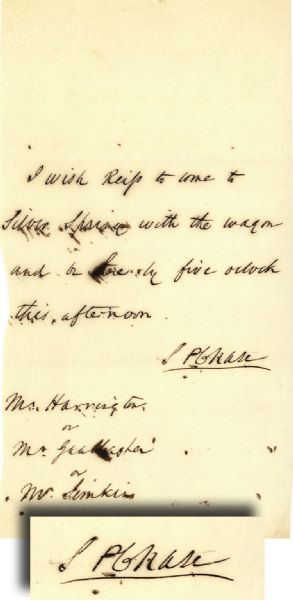 I wish Reiss to come to
Silver Spring with the wagon
and be here by five oclock
this afternoon.
S P Chase
Mr. Harrington.
or
Mr Gallagher
or
Mr. Simkins
S P Chase